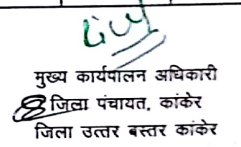 मुख्य कार्यपालन अधिकारी
जिला पंचायत, कांकेर
जिला उत्तर बस्तर कांकेर